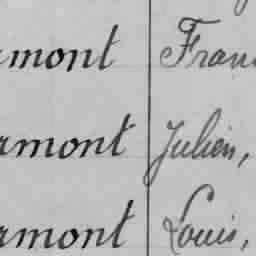 rmont Fran
rmont Julien,
rmont Louis,